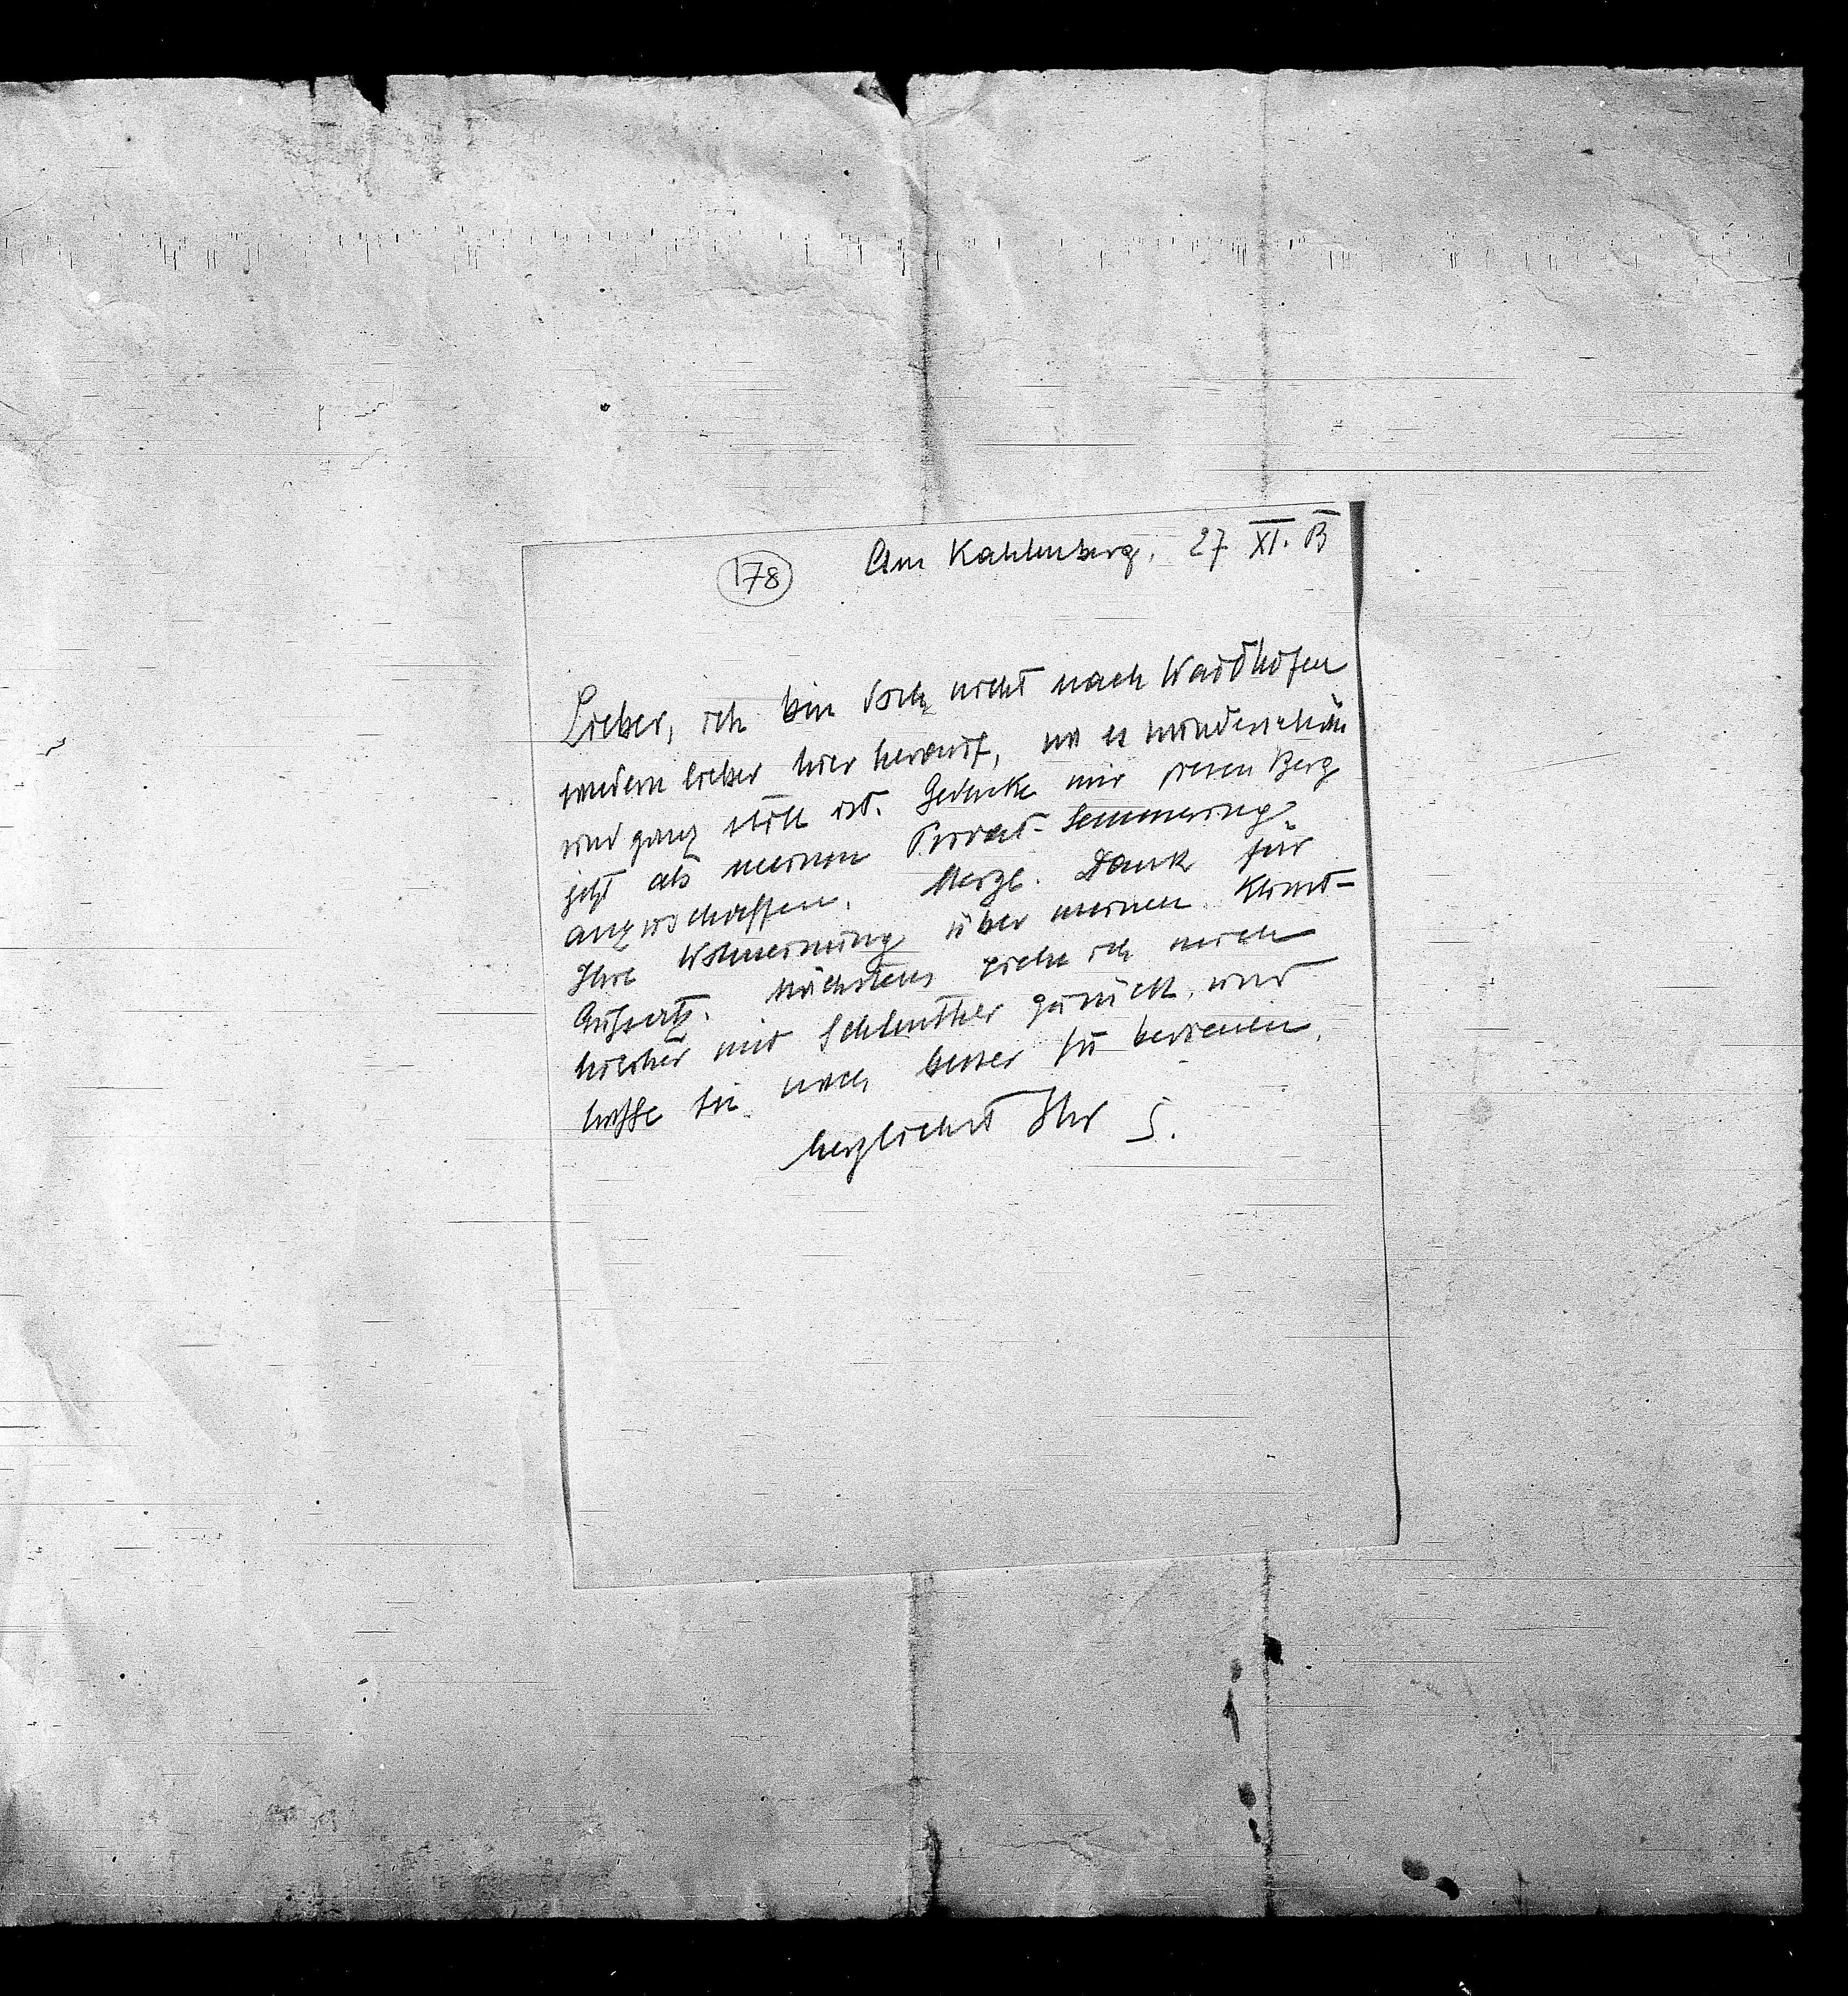 178
Am Kahlenberg, 27 XI.
Lieber, ich bin doch nicht nach Waidhofen
sondern lieber hier herauf, wo es wunderschön
und ganz still ist. Gedenke mir diesen Berg
jetzt als meinen Privat-Semmering
anzuschaffen. Herzl. Dank für
Ihre Wohlmeinung über meinen Klimt-
Aufsatz. Nächstens ziehe ich mich
hieher mit Schlenther zurück und
hoffe Sie noch besser zu bedienen.
herzlichst Ihr S.